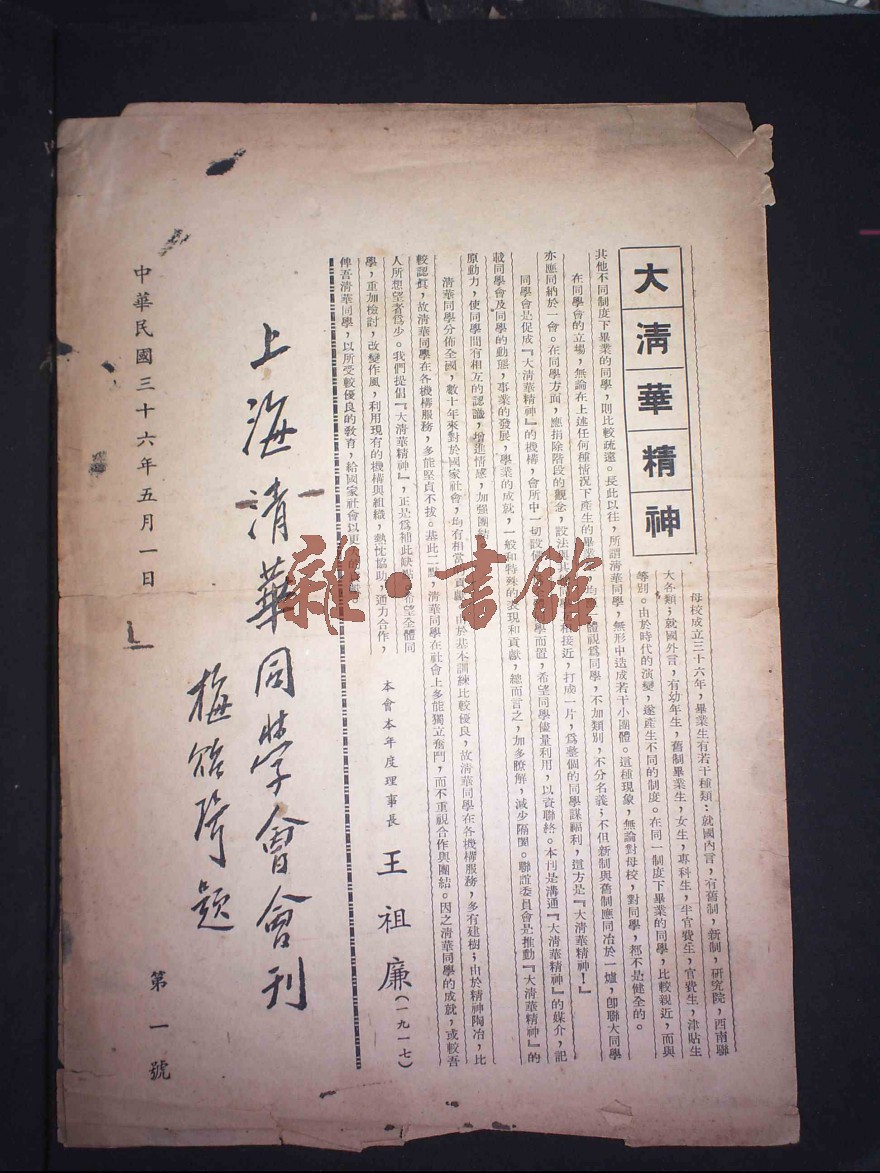 大清華精神
母校成立三十六年,畢業生有若干種類:就國內言,有舊制,新制,研究院,西南聯
大各類;就國外言,有幼年生,舊制畢業生,女生,專科生,半官費生,官費生,津貼生
等別。由於時代的演變,遂產生不同的制度。在同一制度下畢業的同學,比較親近,而與
其他不同制度下畢業的同學,則比較疏遠。長此以往,所謂清華同學,無形中造成若干小團體。這種現象,無論對母校,對同學,都不是健全的。
在同學會的立場,無論在上述任何種情況下產生的畢業 均 體視爲同學,不加類別,不分名義;不但新制與舊制應同冶於一爐,卽聯大同學
亦應同納於一會。在同學方面,應捐除階段的觀念,設法與其 同 相接近,打成一片,爲整個的同學謀福利,這方是『大清華精神!』
同學會是促成『大清華精神』的機構,會所中一切設備 學而置,希望同學儘量利用,以資聯絡。本刊是溝通『大清華精神』的媒介,記
載同學會及同學的動態,事業的發展,學業的成就,一般和特殊的表現和貢獻,總而言之,加多瞭解,減少隔閡。聯誼委員會是推動『大清華精神』的
原動力,使同學間有相互的認識,增進情感,加强團結
清華同學分佈全國,數十年來對於國家社會,均有相當 貢獻 由於基本訓練比較優良,故清華同學在各機構服務,多有建樹;由於精神陶冶,比
較認眞,故清華同學在各機構服務,多能堅貞不拔。基此二點,清華同學在社會上多能獨立奮鬥,而不重視合作與團結。因之清華同學的成就,或較吾
人所想望者爲少。我們提倡『大清華精神』,正是爲補此缺點 希望全體同
學,重加檢討,改變作風,利用現有的機構與組織,熱忱協助,通力合作,
俾吾清華同學,以所受較優良的敎育,給國家社會以更
本會本年度理事長 王祖廉(一九一七)
上海清華同學會會刊
梅貽琦題
第一號
中華民國三十六年五月一日
雜·書館